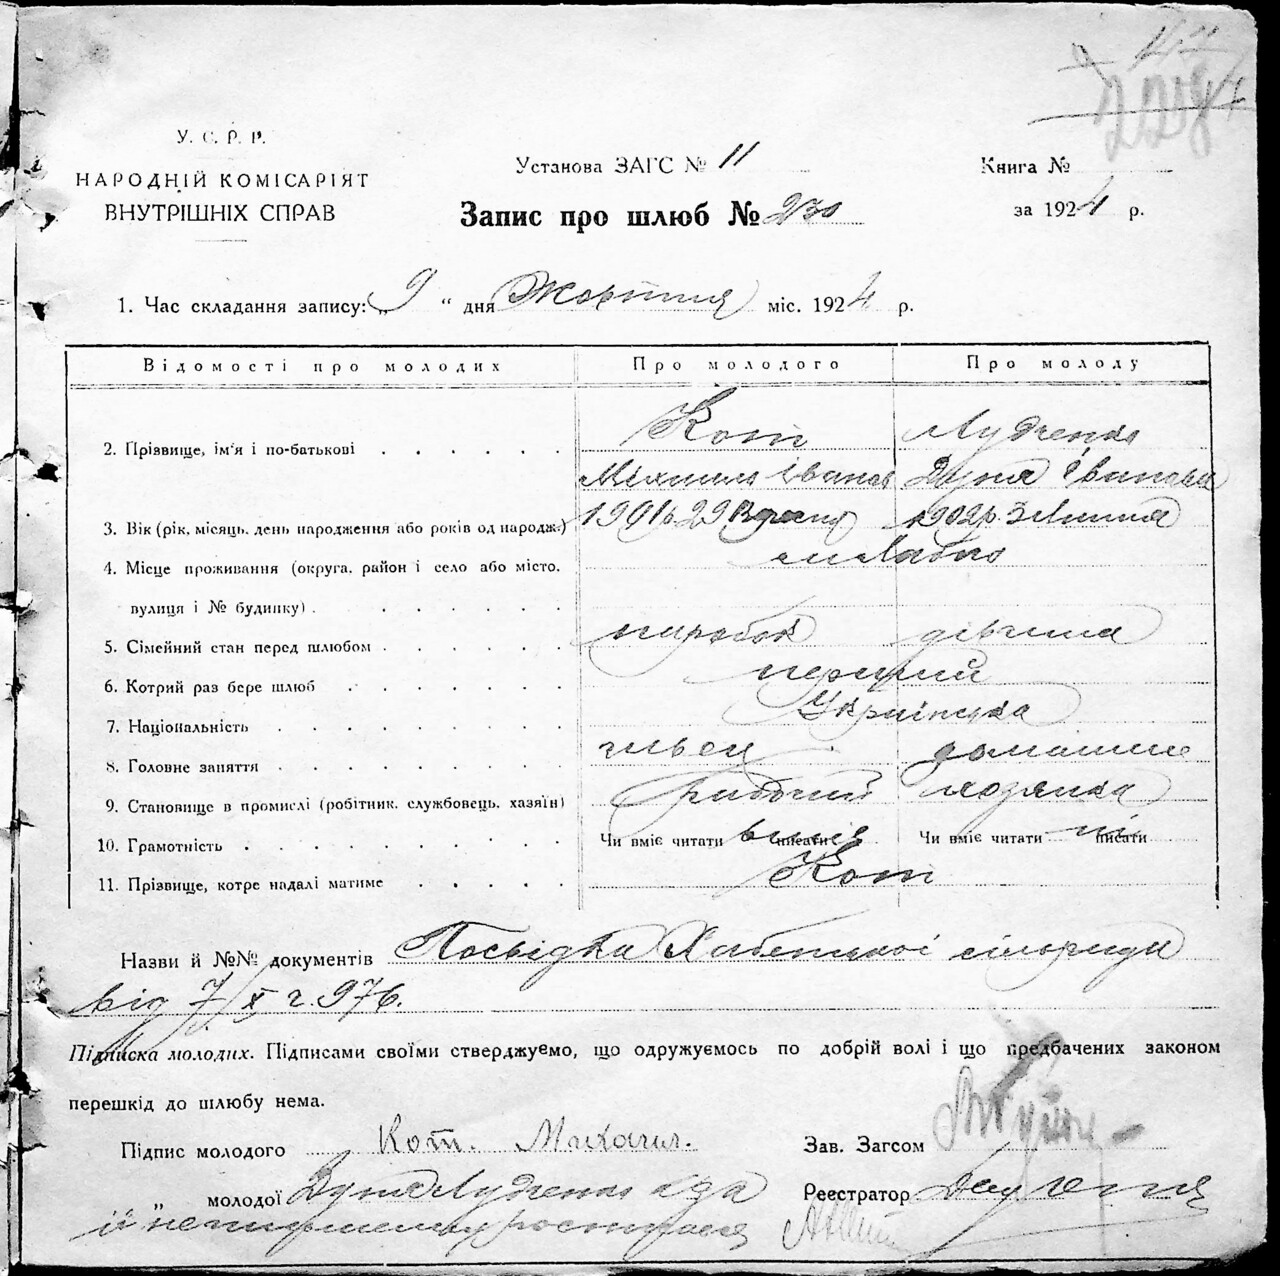 228
У. С. Р. Р.
НАРОДНІЙ КОМІСАРІЯТ
ВНУТРІШНІХ СПРАВ
Установа ЗАГС № 11
Запис про шлюб № 230
Книга №
за 1924 р.
1. Час складання запису: „ 9 “ дня Жовтня міс. 1924 р.
Відомості про молодих Про молодого Про молоду
2. Прізвище, ім'я і по-батькові Кот Лудченко
Михаило Іванов Дуня Іванова
3. Вік (рік, місяць, день народження або років од народж.) 1901 р. 29 1902 р. 3 Липня
4. Місце проживання (округа, район і село або місто,
вулиця і № будинку)
5. Сімейний стан перед шлюбом парубок дівчина
6. Котрий раз бере шлюб перший
7. Національність Українська
8. Головне заняття швец домашне
9. Становище в промислі (робітник, службовець, хазяїн) рабочий хозяйка
10. Грамотність Чи вміє читати вміє писати Чи вміє читати ні писати
11. Прізвище, котре надалі матиме Кот
Назви й №№ документів Посвідка сільради
від 7/X ч. 976.
Підписка молодих. Підписами своїми стверджуємо, що одружуємось по добрій волі і що предбачених законом
перешкід до шлюбу нема.
Підпис молодого Кот. Михаил. Зав. Загсом
„ молодої Дуня Лудченко а за Реєстратор
її неписьменну